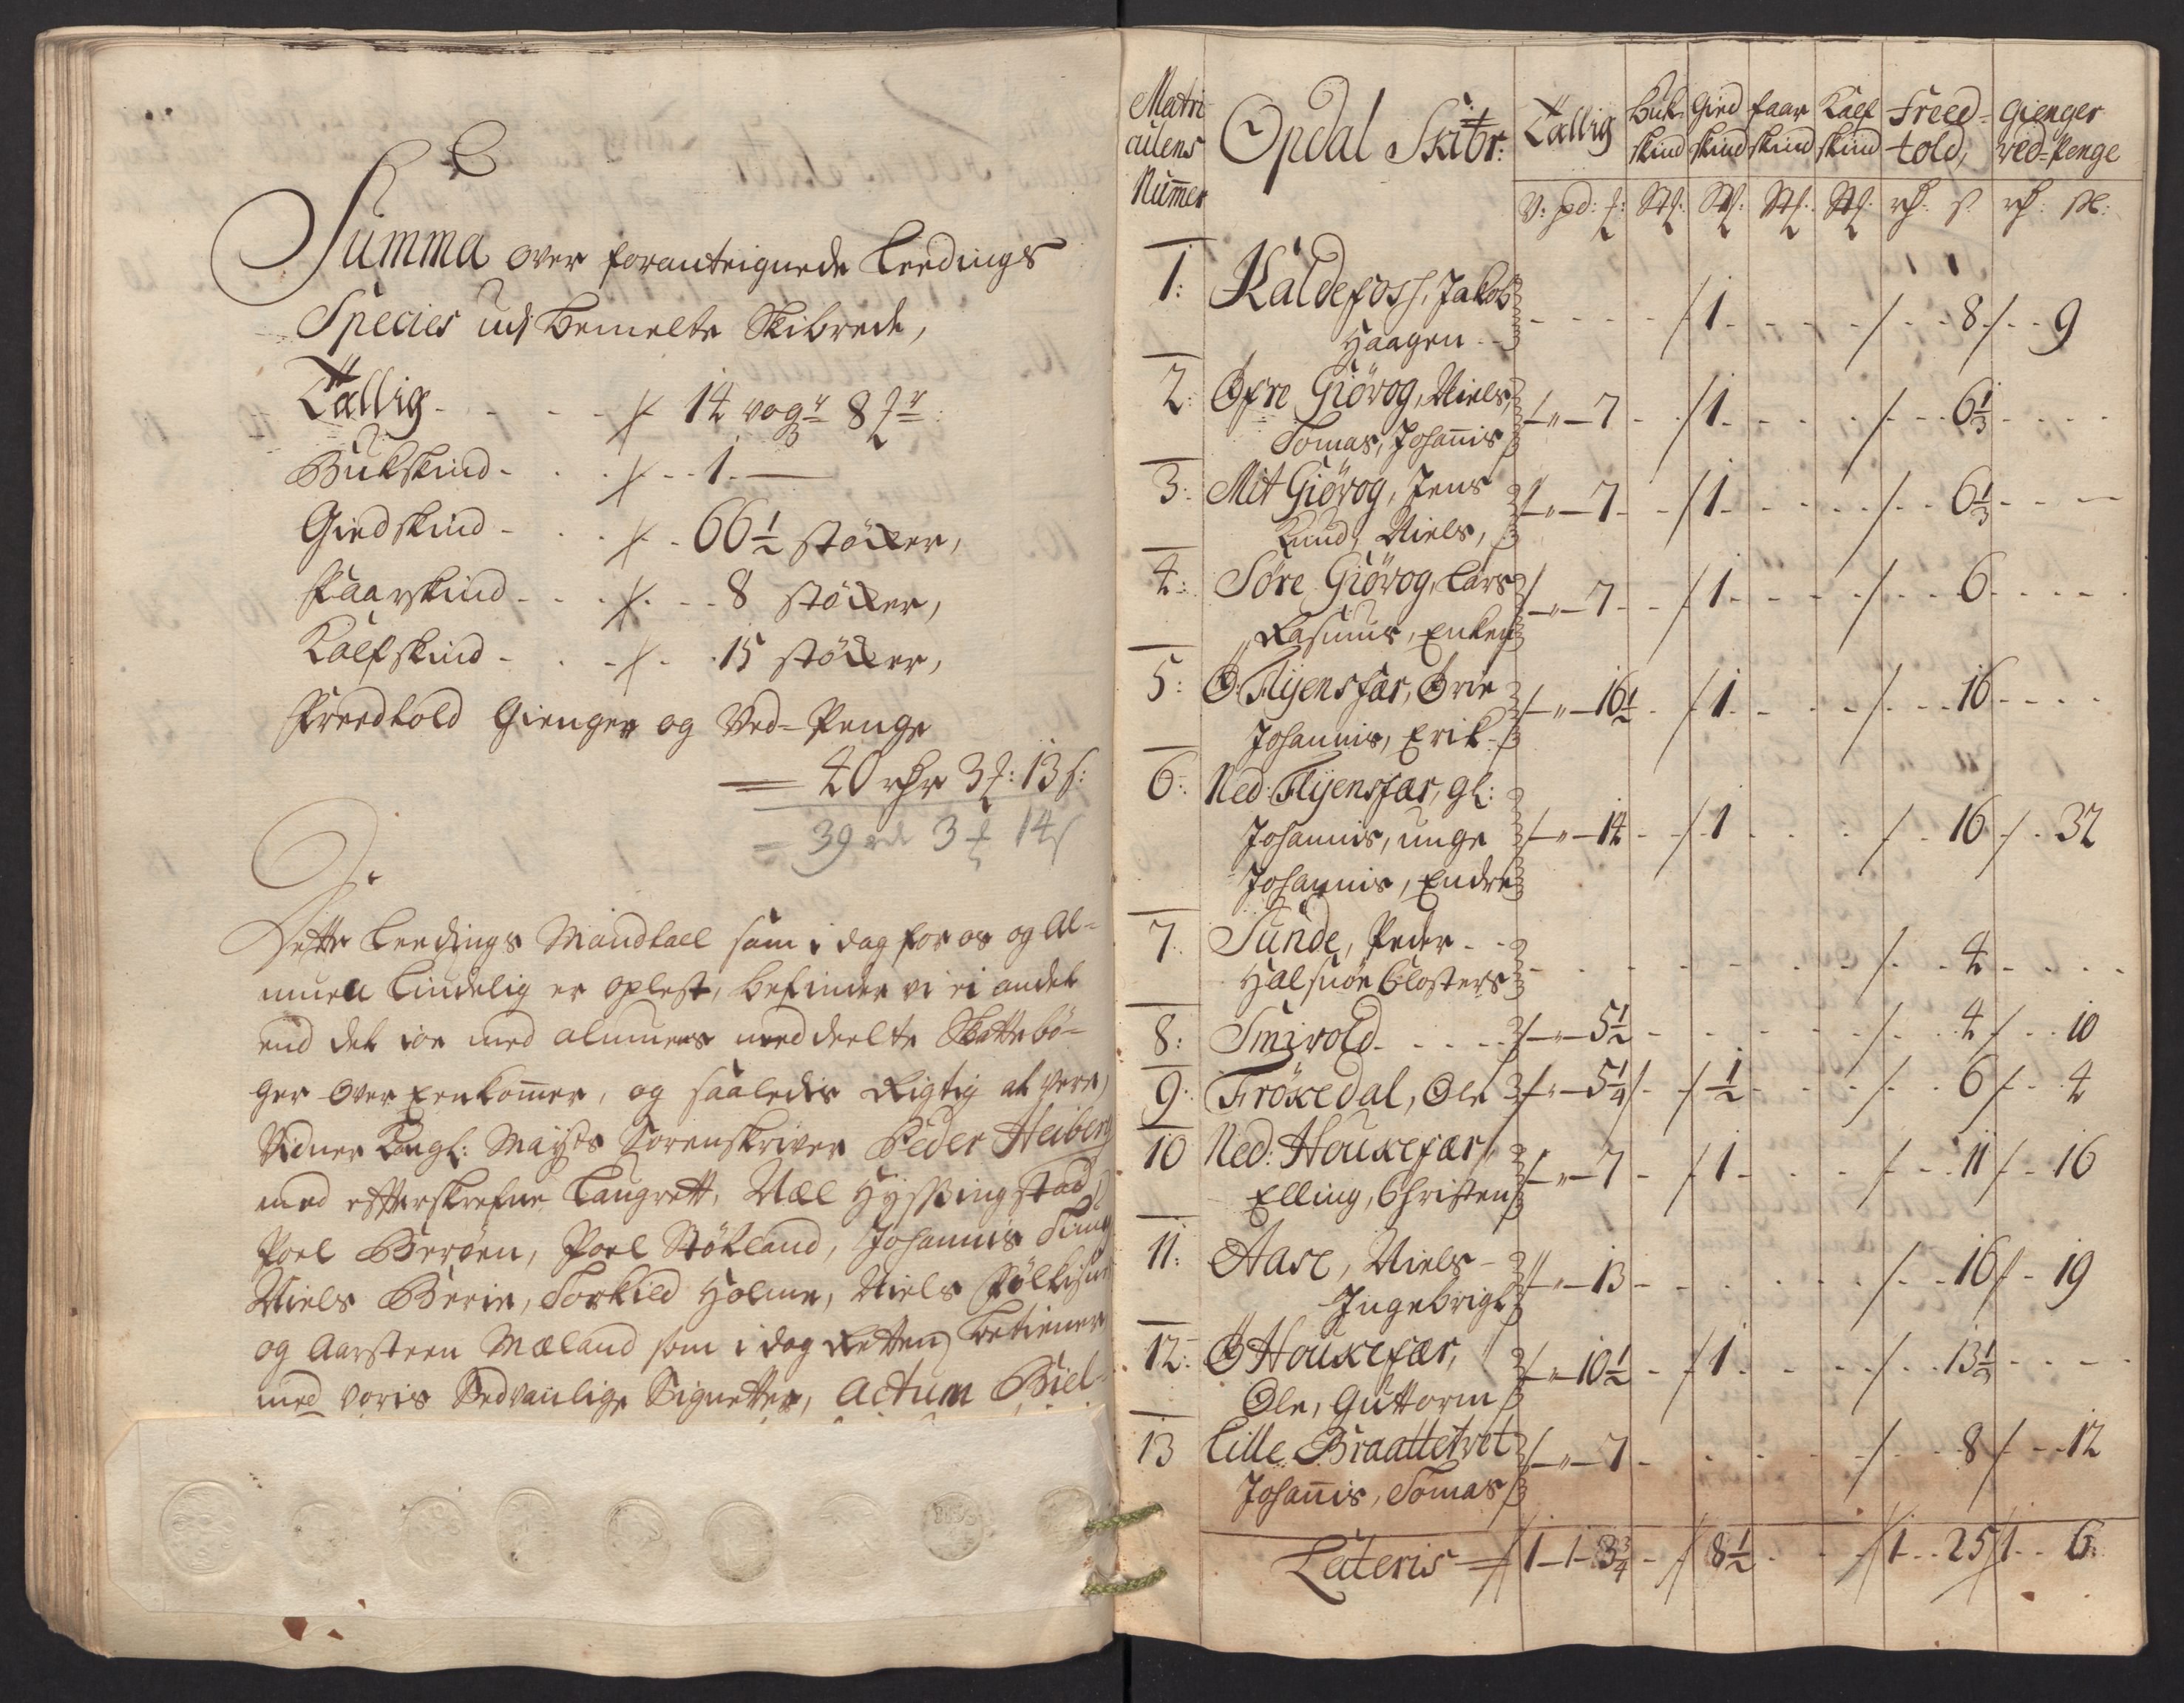 Summa over foranteignede Leedings
Species udj bemelte Skibrede,
Tallig - - - - 14 vogr 8 ℔r:
Bukskind - - - - 1 -
Giedskind - - - 66½ støcker,
Faarskind - - - - 8 støcker,
Kalfskind - - - - 15 støcker,
Freedtold Gienger og Ved-Penge
= 40 rdr 3 ℔: 13 s:
= 39 rd 3 ℔ 14 s
Dette Leedings Mandtall som i dag for os og Al-
muen tindelig er oplest, befinder vi ei andet
end det jo med almuens meddeelte Skattebø-
ger over Eenkom̅er, og saaledis Rigtig at vere,
Vidner Kongl: Mayts Sorenskriver Peder Heiberg
med effterskrefne Laugrett, Niels Hyssingstad,
Poel Berøen, Poel Støkland, Johannis
Niels Berie, Torkild Holme, Niels
og Aarsteen Mæland som i dag Retten betiener
med voris Sedvanlige Signetter, Actum Biel-
Matri
culens
Num̅er
Opdal Skibr:
Tallig
Buk
skind
Gied
skind
faar
skind
Kalf
skind
Freed-
told,
Gienger
ved-Penge
V: pd: ℔: St: St: St: St: rd: s: rd: sl:
1: Kaldefoss, Jakob
Haagen - - 1 - - - 8 - 9
2: Øfre Giørog, Niels,
Tomas, Johan̅is - " - 7 - 1 - - - 6⅓ - - -
3: Mit Giørog, Jens
Knud, Niels, - " - 7 - 1 - - - 6⅓ - - -
4: Søre Giørog, Lars
Rasmus, Enken - " - 7 - 1 - - - 6 - - -
5: Ø: Flyensfær, Brie
Johannis, Erik - " - 16½ - 1 - - - 16 - - -
6: Ned: Flyensfær, gl:
Johannis, unge - " - 14 - 1 - - - 16 - 32
Johannis, Endre
7. Sunde, Peder - -
Halsnøe Closters - - - - 4 - - -
8: Smivold - - - - " - 5½ - - - - 4 - 10
9: Frøkedal, Ole - " - 5¼ - ½ - - - 6 - 4
10 Ned: Houkefær,
Elling, Christen - " - 7 - 1 - - - 11 - 16
11: Aase, Niels -
Ingebrigt - " - 13 - - - - 16 - 19
12: Ø Houkefær,
Ole, Guttorm - " - 10½ - 1 - - - 13½ - - -
13 Lille Braattetvet
Johan̅is, Tomas - " - 7 - - - - 8 - 12
Lateris = 1 - 1 - 3¾ - 8½ - - - 1 - 25 1 - 6